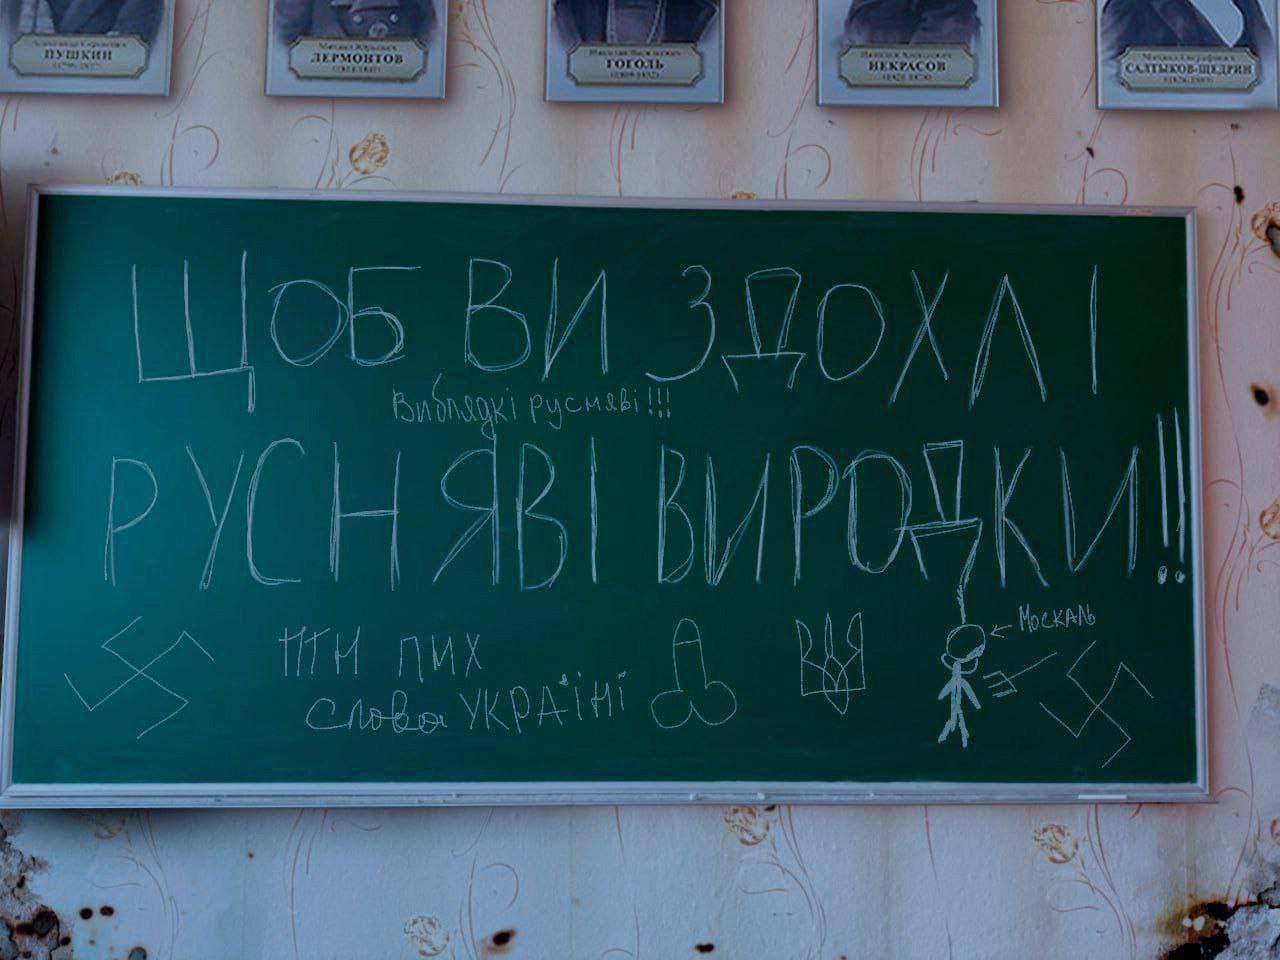 Александр Сергеевич
ПУШКИН
(1799-1837)
Михаил Юрьевич
ЛЕРМОНТОВ
(1814-1841)
Николай Васильевич
ГОГОЛЬ
(1809-1852)
Николай Алексеевич
НЕКРАСОВ
(1821-1878)
Михаил Евграфович
САЛТЫКОВ-ЩЕДРИН
(1826-1889)
ЩОБ ВИ ЗДОХЛІ
Виблядкі русняві!!!
РУСНЯВІ ВИРОДКИ!!
← Москаль
ПТН ПНХ
Слова УКРАЇНІ